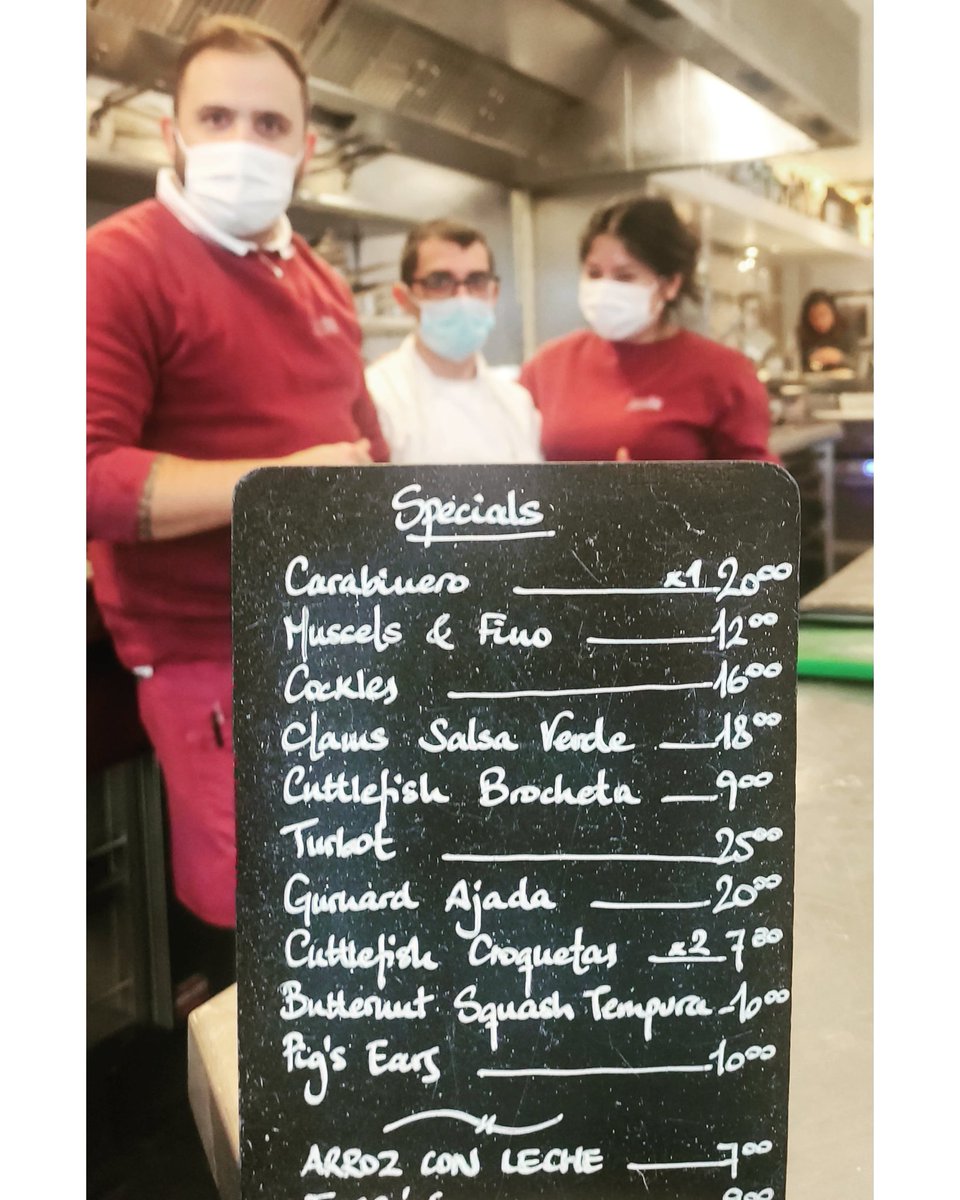 Specials
Carabinero x1 20⁰⁰
Muscels & Fino 12⁰⁰
Cockles 16⁰⁰
Clams Salsa Verde 18⁰⁰
Cuttlefish Brocheta 9⁰⁰
Turbot 25⁰⁰
Gurnard Ajada 20⁰⁰
Cuttlefish Croquetas x2 7⁸⁰
Butternut Squash Tempura - 10⁰⁰
Pig's Ears 10⁰⁰
ARROZ CON LECHE 7⁰⁰